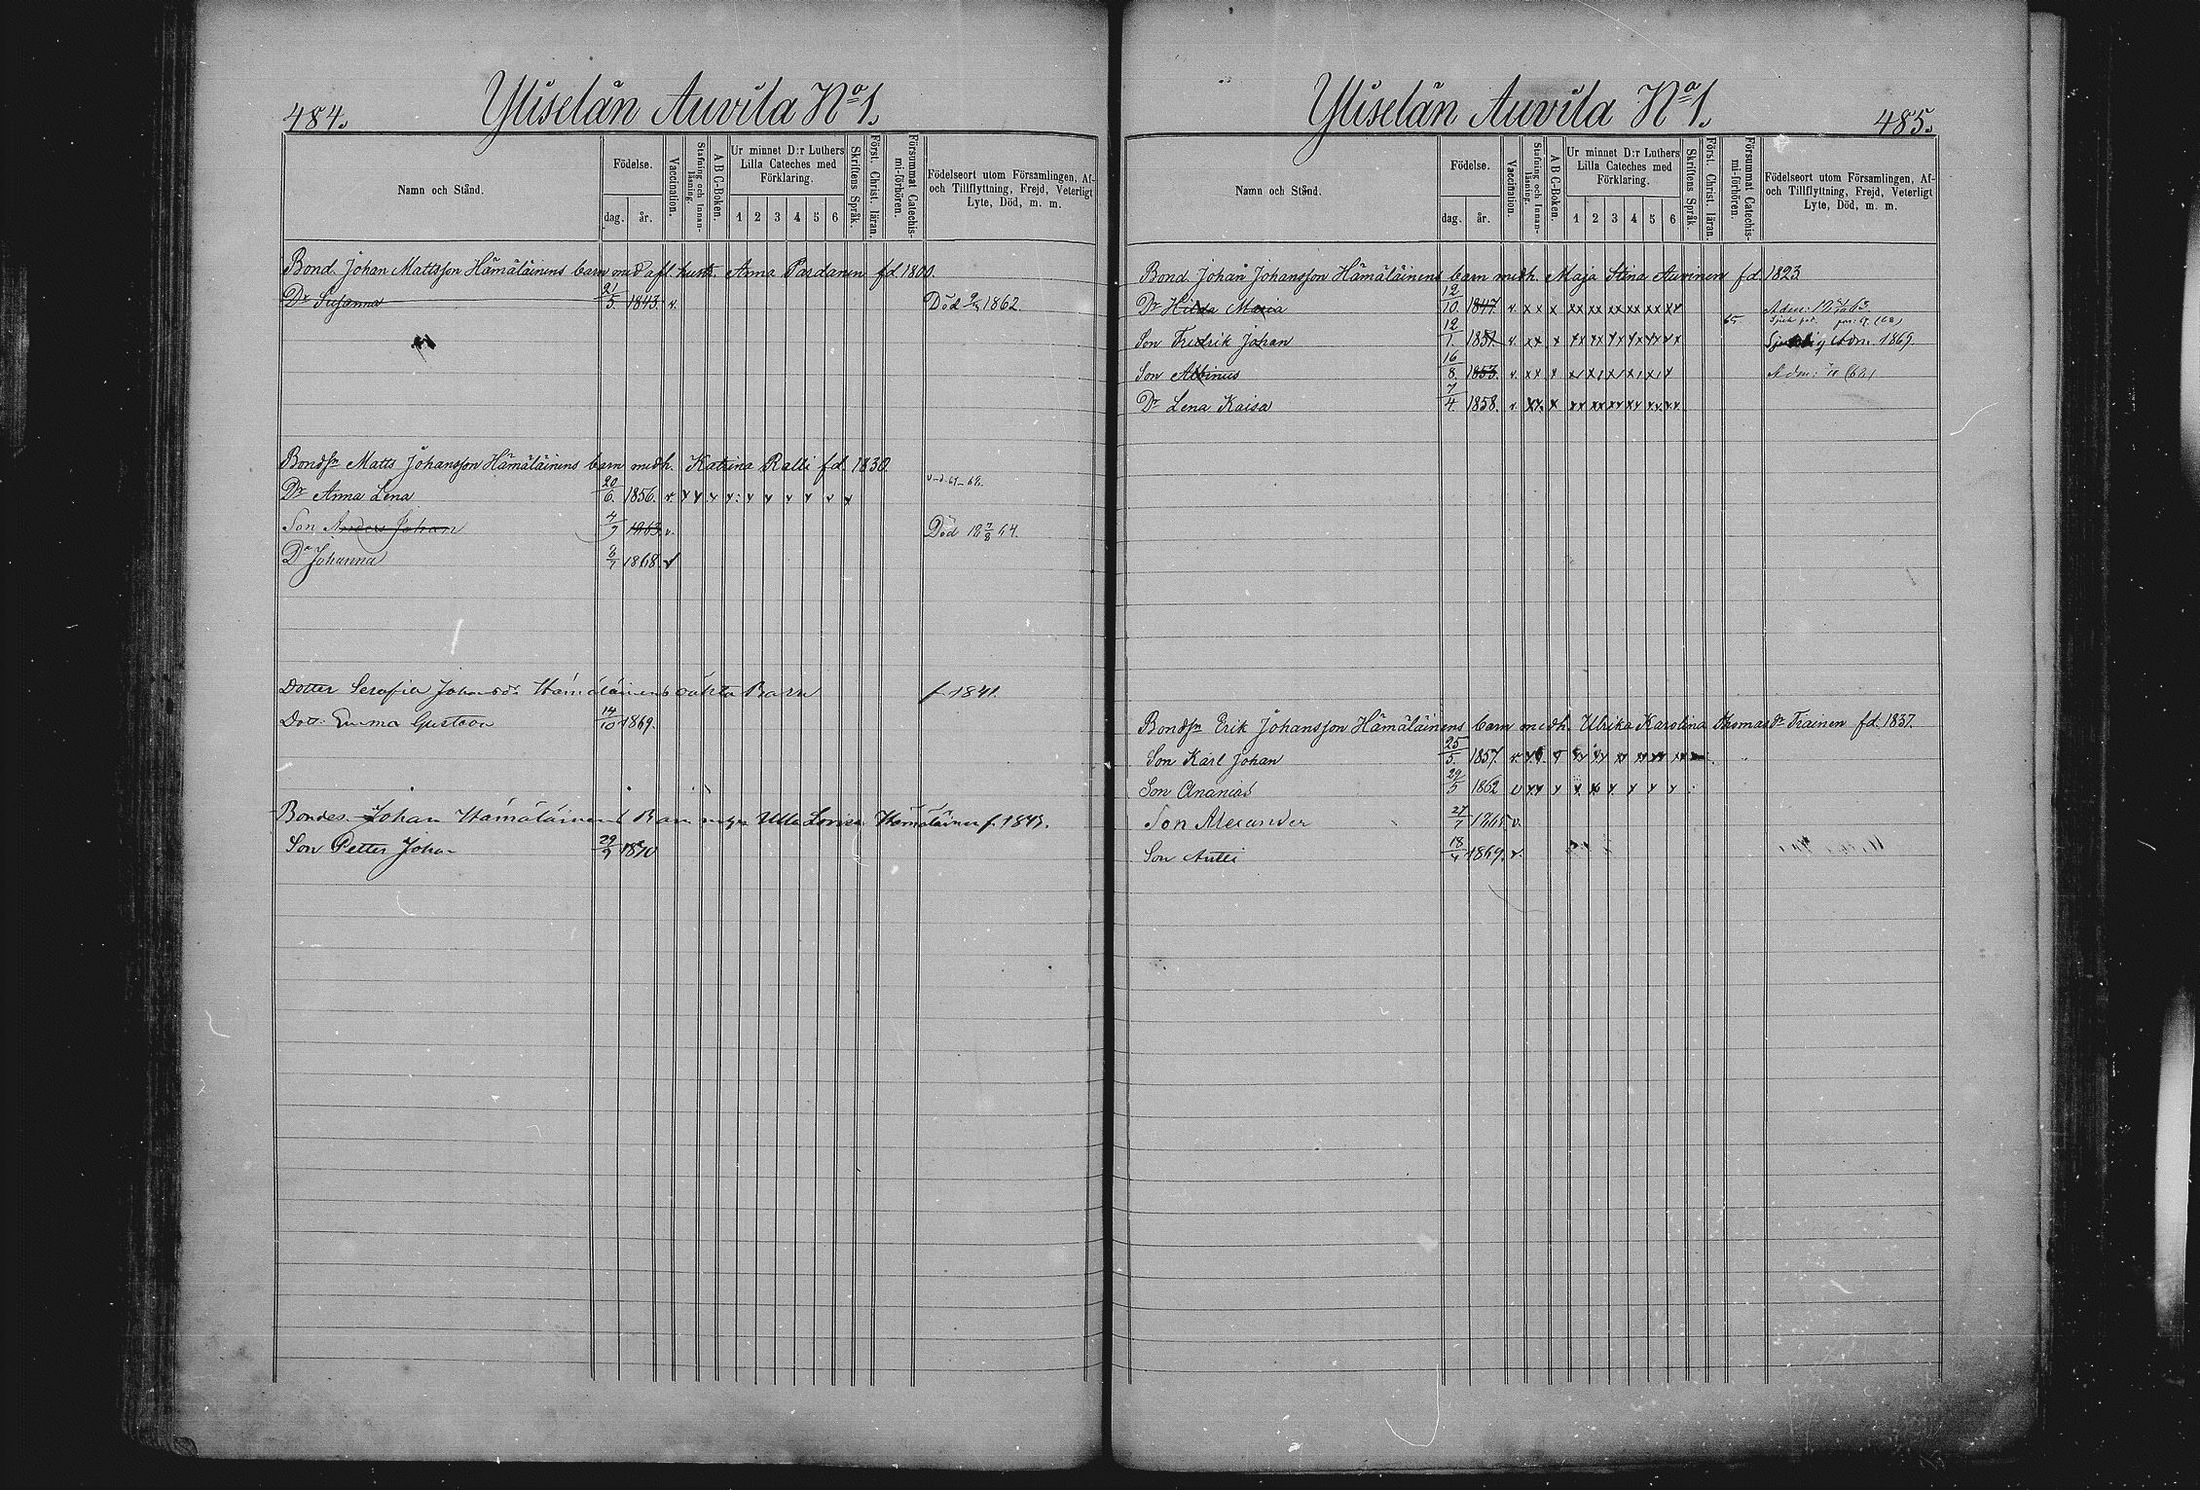 484.
Yliselän Auvila No 1.
Namn och Stånd.
Födelse.
dag.
år.
Vaccination.
Stafning och Innan-läsning.
A B C-Boken.
Ur minnet D:r Luthers
Lilla Cateches med
Förklaring.
1 2 3 4 5 6
Skriftens Språk.
Först. Christ. läran.
Försummat Catechis-mi-förhören.
Födelseort utom Församlingen, Af-
och Tillflyttning, Frejd, Veterligt
Lyte, Död, m. m.
Bond. Johan Mattsson Hämäläinens barn med afl. hustr. Anna Pardanen fd. 1800.
Dr Susanna 21/5 1843. v. Död 1862.
Bondsn Matts Johansson Hämäläinens barn med h. Katrina Ralli fd. 1830.
Dr Anna Lena 20/6 1856. v x x x x x x x x x x
Son Anders Johan 4/9 1863. v. Död 18 7/8 64.
Dr Johanna 8/7 1868 v
Dotter Serafia Johansdr Hämäläinens oäkta Barn f 1841.
Dott: Emma Gustava 14/10 1869.
Bondes. Johan Hämäläinens Barn Ulla Lovisa Hämäläinen f. 1843.
Son Petter Johan 29/9 1870
485.
Yliselän Auvila No 1.
Namn och Stånd.
Födelse.
dag.
år.
Vaccination.
Stafning och Innan-läsning.
A B C-Boken.
Ur minnet D:r Luthers
Lilla Cateches med
Förklaring.
1 2 3 4 5 6
Skriftens Språk.
Först. Christ. läran.
Försummat Catechis-mi-förhören.
Födelseort utom Församlingen, Af-
och Tillflyttning, Frejd, Veterligt
Lyte, Död, m. m.
Bond. Johan Johansson Hämäläinens barn med h. Maja Stina Auvinen fd. 1823
Dr Hilda Maria 12/10 1847. v x x x xx xx xx xx xx xx
Son Fredrik Johan 12/1 1851. v. xx x xx xx xx xx xx xx 65. Adm. 1869.
Son Albinus 16/8 1853. v xx x
Dr Lena Kaisa 7/4 1858. v xx x xx xx xx xx xx xx
Bondsn Erik Johansson Hämäläinens barn med h. Ulrika Karolina Thomasdr Trainen fd. 1837.
Son Karl Johan 25/5 1857. v
Son Ananias 29/5 1862 v xx x x x x x x x
Son Alexander 27/7 1865 v.
Son Antti 18/4 1869. v.